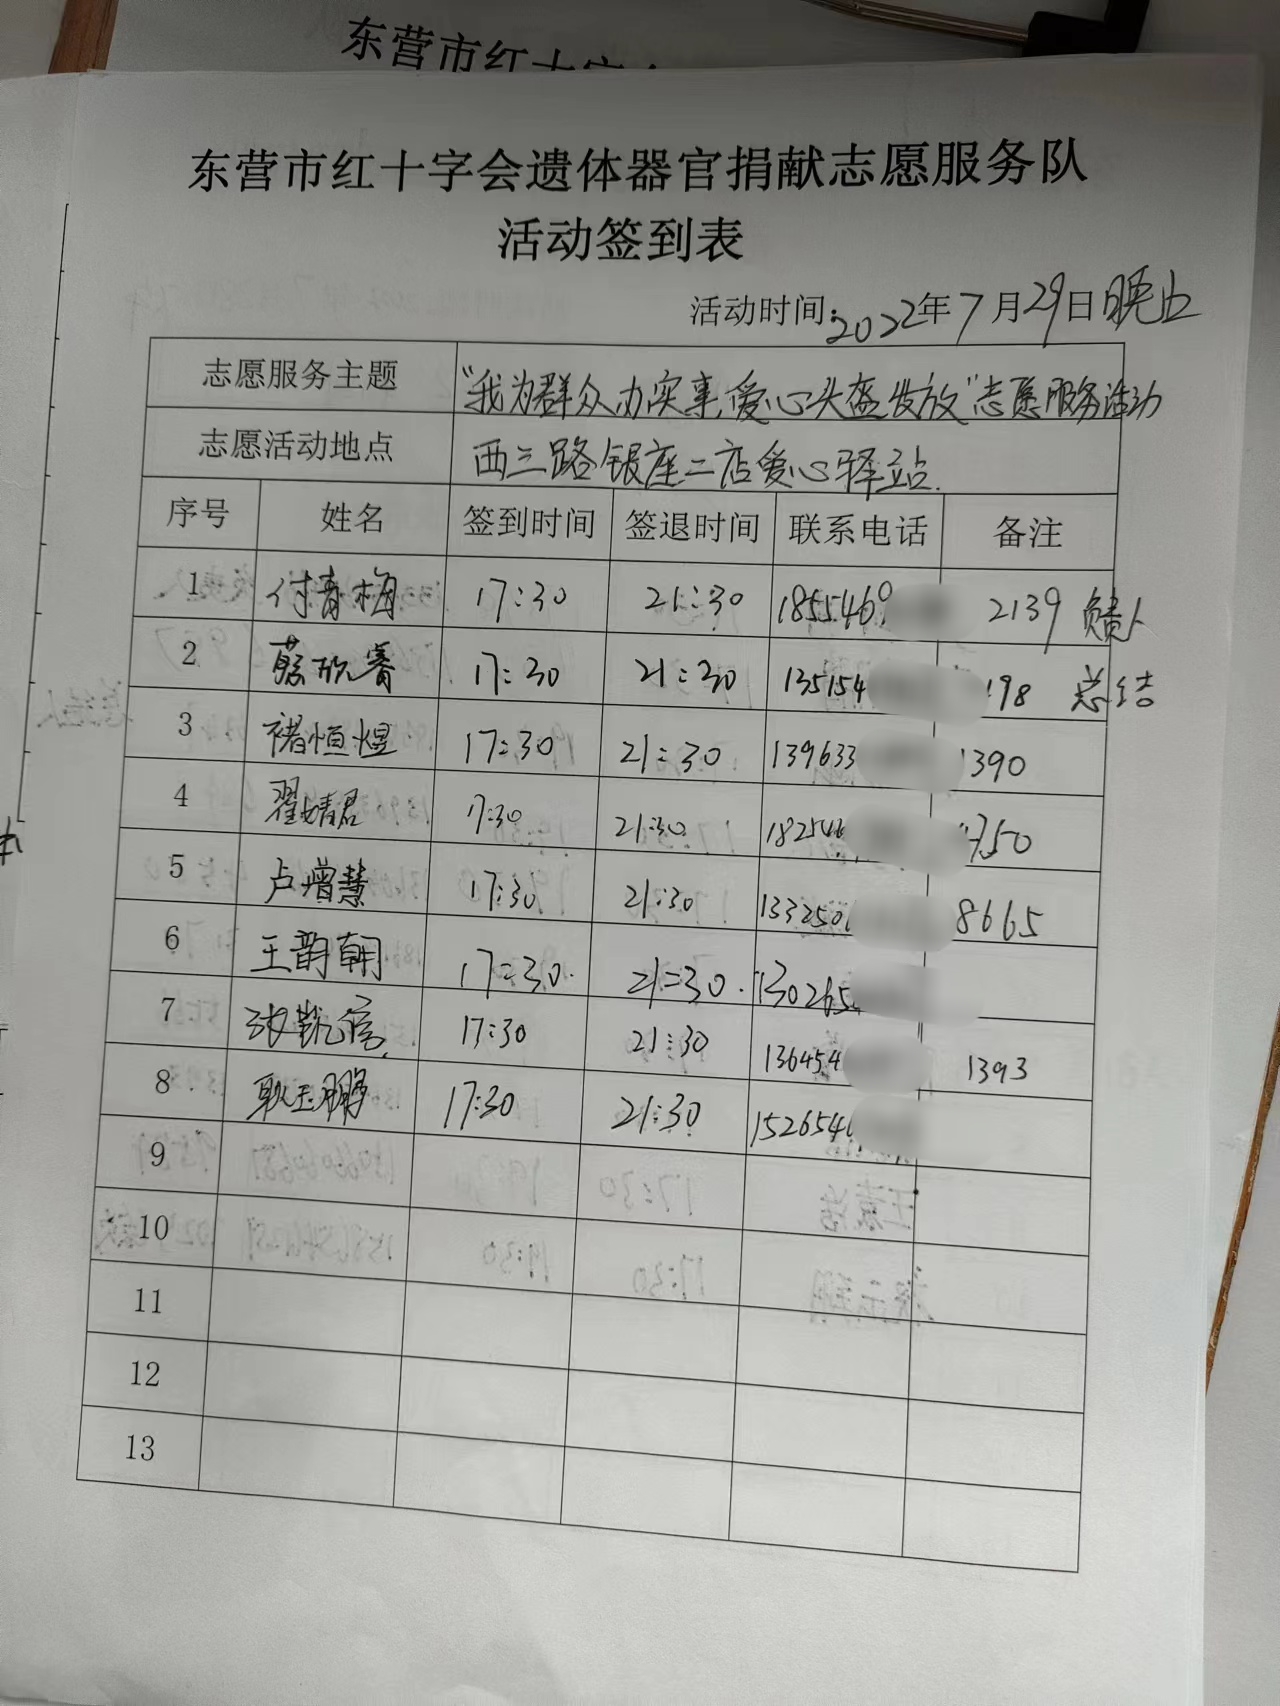 东营市红十字会遗体器官捐献志愿服务队
活动签到表
活动时间:2022年7月29日晚上
志愿服务主题 "我为群众办实事,爱心头盔发放"志愿服务活动
志愿活动地点 西三路银座二店爱心驿站.
序号 姓名 签到时间 签退时间 联系电话 备注
1 付青梅 17:30 21:30 1855469 2139 负责人
2 蔡欣睿 17:30 21:30 135154 198 总结
3 褚恒煜 17:30 21:30 139633 1390
4 翟婧君 17:30 21:30 182546 4750
5 卢增慧 17:30 21:30 1332501 8665
6 王韵朝 17:30. 21:30. 130265
7 张凯信 17:30 21:30 136454 1393
8 耿玉鹏 17:30 21:30 1526540
9
10
11
12
13